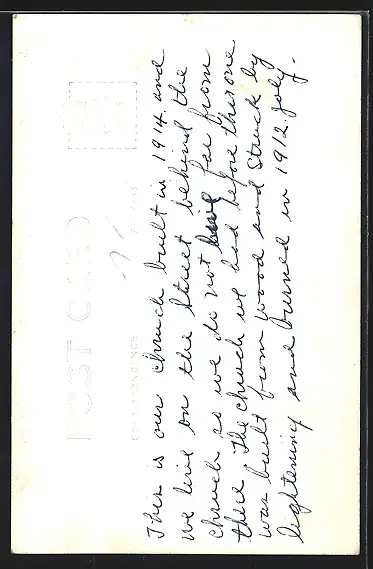 POST CARD
CORRESPONDENCE
ADDRESS
This is our chruch built in 1914. and
we live on the street behind the
chruch so we do not live far from
there The chruch we had before this one
was built from wood and struck by
lightening and burned in 1912 july.